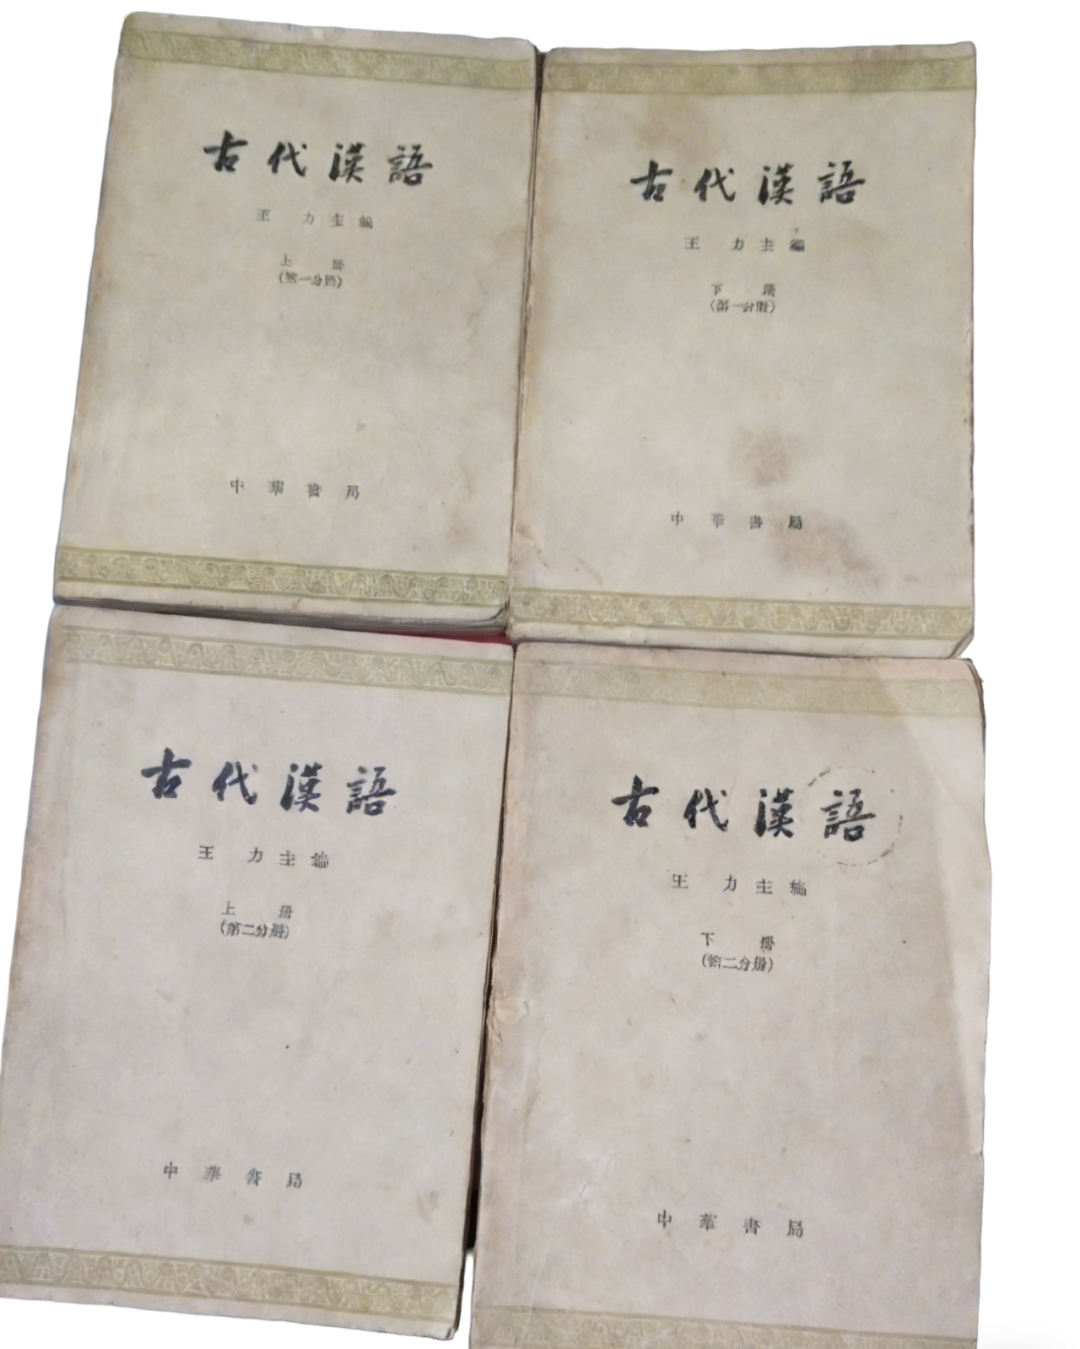 古代漢語
王力主編
上冊
(第一分冊)
中華書局
古代漢語
王力主編
下冊
(第一分冊)
中華書局
古代漢語
王力主編
上冊
(第二分冊)
中華書局
古代漢語
王力主編
下冊
(第二分冊)
中華書局